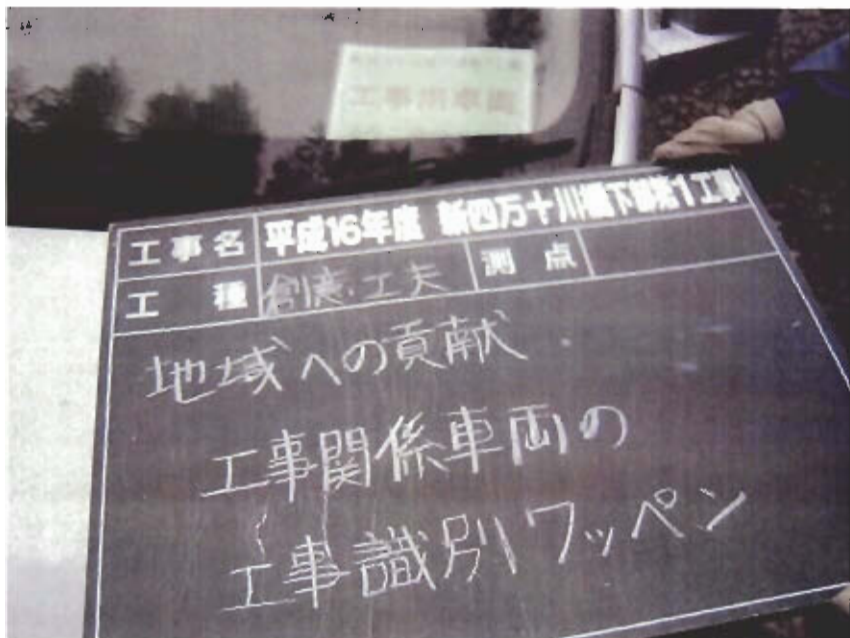 工事用車両
工事名 平成16年度 新四万十川橋下部第1工事
工種 創意・工夫 測点
地域への貢献
工事関係車両の
工事識別ワッペン